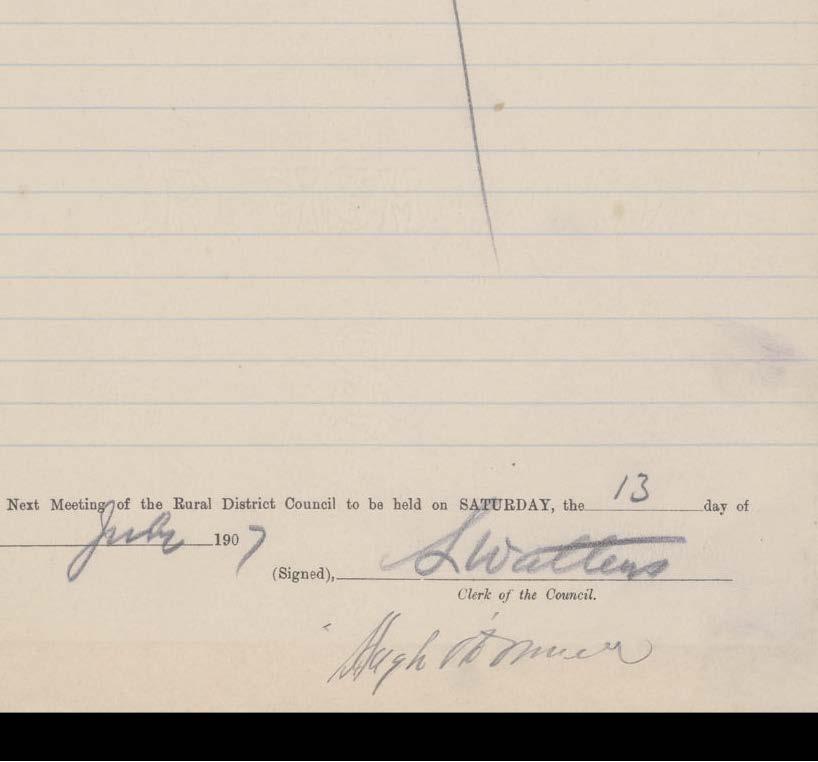 Next Meeting of the Rural District Council to be held on SATURDAY, the 13 day of
July 1907
(Signed), S Walters
Clerk of the Council.
Hugh